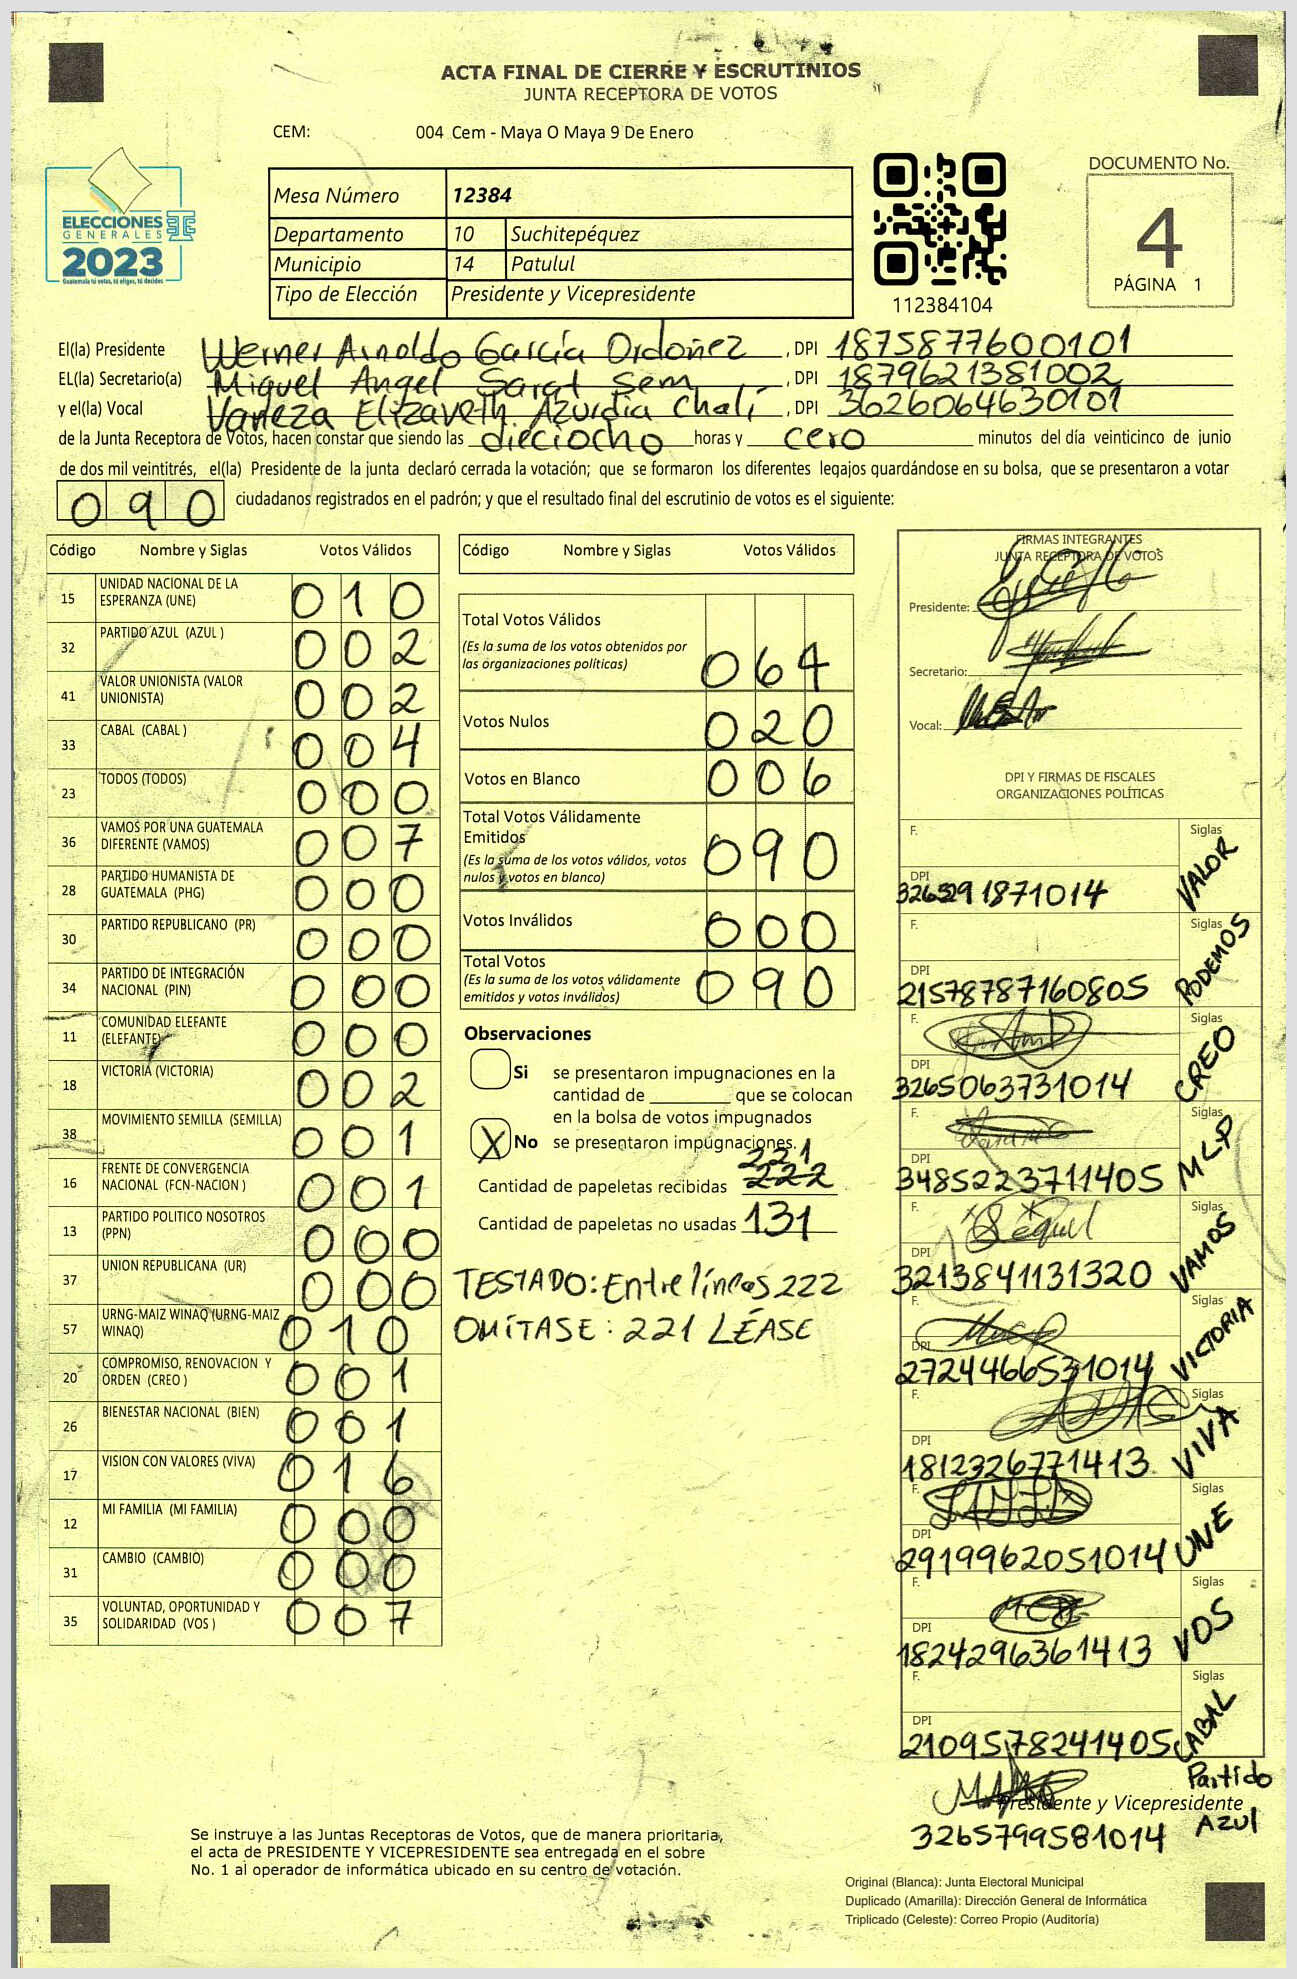 ACTA FINAL DE CIERRE Y ESCRUTINIOS
JUNTA RECEPTORA DE VOTOS
CEM: 004 Cem - Maya O Maya 9 De Enero
ELECCIONES
GENERALES
2023
Guatemala tú votas, tú eliges, tú decides
Mesa Número 12384
Departamento 10 Suchitepéquez
Municipio 14 Patulul
Tipo de Elección Presidente y Vicepresidente
112384104
DOCUMENTO No.
4
PÁGINA 1
El(la) Presidente Werner Arnoldo García Ordoñez, DPI 1875877600101
EL(la) Secretario(a) Miguel Angel Sarat Sem, DPI 1879621381002
y el(la) Vocal Vaneza Elizaveth Azurdia Chalí, DPI 3626064630101
de la Junta Receptora de Votos, hacen constar que siendo las dieciocho horas y cero minutos del día veinticinco de junio
de dos mil veintitrés, el(la) Presidente de la junta declaró cerrada la votación; que se formaron los diferentes legajos guardándose en su bolsa, que se presentaron a votar
090 ciudadanos registrados en el padrón; y que el resultado final del escrutinio de votos es el siguiente:
Código Nombre y Siglas Votos Válidos
15 UNIDAD NACIONAL DE LA ESPERANZA (UNE) 010
32 PARTIDO AZUL (AZUL ) 002
41 VALOR UNIONISTA (VALOR UNIONISTA) 002
33 CABAL (CABAL ) 004
23 TODOS (TODOS) 000
36 VAMOS POR UNA GUATEMALA DIFERENTE (VAMOS) 007
28 PARTIDO HUMANISTA DE GUATEMALA (PHG) 000
30 PARTIDO REPUBLICANO (PR) 000
34 PARTIDO DE INTEGRACIÓN NACIONAL (PIN) 000
11 COMUNIDAD ELEFANTE (ELEFANTE) 000
18 VICTORIA (VICTORIA) 002
38 MOVIMIENTO SEMILLA (SEMILLA) 001
16 FRENTE DE CONVERGENCIA NACIONAL (FCN-NACION ) 001
13 PARTIDO POLITICO NOSOTROS (PPN) 000
37 UNION REPUBLICANA (UR) 000
57 URNG-MAIZ WINAQ (URNG-MAIZ WINAQ) 010
20 COMPROMISO, RENOVACION Y ORDEN (CREO ) 001
26 BIENESTAR NACIONAL (BIEN) 001
17 VISION CON VALORES (VIVA) 016
12 MI FAMILIA (MI FAMILIA) 000
31 CAMBIO (CAMBIO) 000
35 VOLUNTAD, OPORTUNIDAD Y SOLIDARIDAD (VOS ) 007
Código Nombre y Siglas Votos Válidos
Total Votos Válidos
(Es la suma de los votos obtenidos por
las organizaciones políticas) 064
Votos Nulos 020
Votos en Blanco 006
Total Votos Válidamente
Emitidos
(Es la suma de los votos válidos, votos
nulos y votos en blanco) 090
Votos Inválidos 000
Total Votos
(Es la suma de los votos válidamente
emitidos y votos inválidos) 090
Observaciones
Si se presentaron impugnaciones en la
cantidad de ________ que se colocan
en la bolsa de votos impugnados
X No se presentaron impugnaciones.
221
Cantidad de papeletas recibidas 222
Cantidad de papeletas no usadas 131
TESTADO: Entre líneas 222
OMÍTASE: 221 LÉASE
FIRMAS INTEGRANTES
JUNTA RECEPTORA DE VOTOS
Presidente:
Secretario:
Vocal:
DPI Y FIRMAS DE FISCALES
ORGANIZACIONES POLÍTICAS
F. Siglas VALOR
DPI
F. Siglas PODEMOS
DPI 21578787160805
F. Siglas CREO
DPI 3265063731014
F. Siglas MLP
DPI 3485223711405
F. Siglas VAMOS
DPI 3213841131320
F. Siglas VICTORIA
DPI 2724466531014
F. Siglas VIVA
DPI 1812326771413
F. Siglas UNE
DPI 2919962051014
F. Siglas VOS
DPI 1824296361413
F. Siglas CABAL
DPI 2109578241405
Partido
Presidente y Vicepresidente
Azul
3265799581014
Se instruye a las Juntas Receptoras de Votos, que de manera prioritaria,
el acta de PRESIDENTE Y VICEPRESIDENTE sea entregada en el sobre
No. 1 al operador de informática ubicado en su centro de votación.
Original (Blanca): Junta Electoral Municipal
Duplicado (Amarilla): Dirección General de Informática
Triplicado (Celeste): Correo Propio (Auditoría)